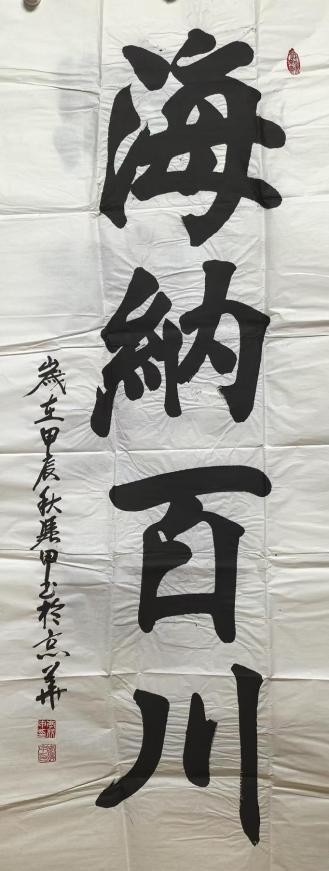 海納百川
歲在甲辰秋 甲書於京華